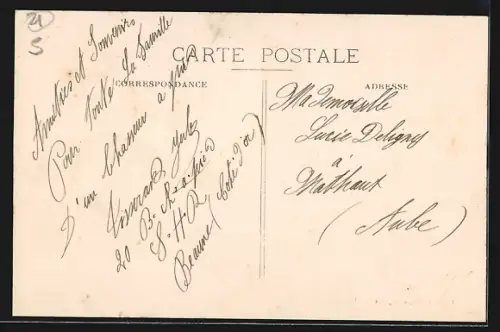 21
S
CARTE POSTALE
CORRESPONDANCE
ADRESSE
Amitiés et Souvenirs
Pour Toute La Famille
D'un Chasseur à pied
Jules
20 B.
S. H. R.
Beaune (Côte d'or)
Mademoiselle
Lucie Deligny
à
Mathaux
(Aube)